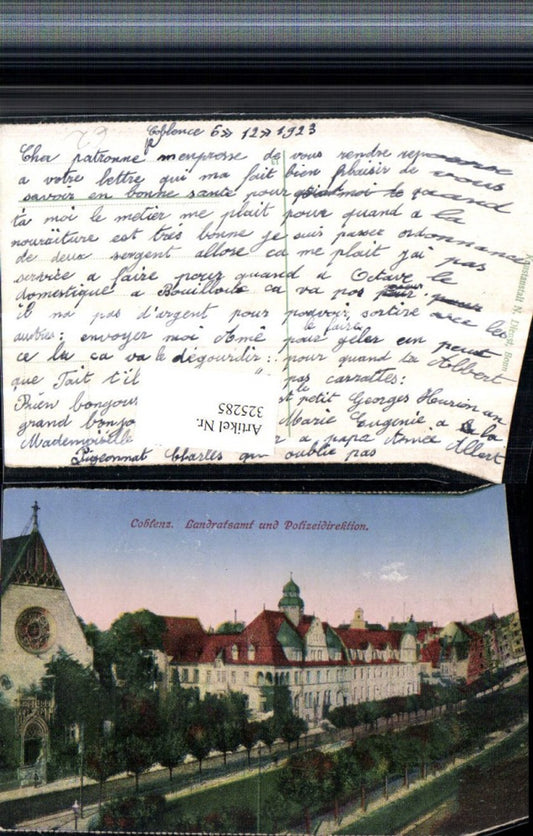 Coblence 6 » 12 » 1923
Cher patronne m'enpresse de vous rendre reponse
a votre lettre qui ma fait bien plaisir de vous
savoir en bonne santé pour quand
ta moi le metier me plait pour quand a la
nouraiture est très bonne je suis passer ordonnance
de deux sergent allose ca me plait j'ai pas
service a faire pour quand a Octave le
domestique a Bouilloux ca va pas
il na pas d'argent pour pouvoir sortire avec les
autres: envoyer moi Amé le faire
ce la ca va le dégourdir: pour quand ta Albert
que Fait t'il pas carzattes:
Bien bonjour petit Georges Heurion un
grand bonjour Marie Eugenie a la
Mademoiselle a papa Amée Albert
Pigeonnat Charles qui oublie pas
Kunstanstalt N. Dirost, Bonn
Artikel Nr.
325285
Coblenz. Landratsamt und Polizeidirektion.